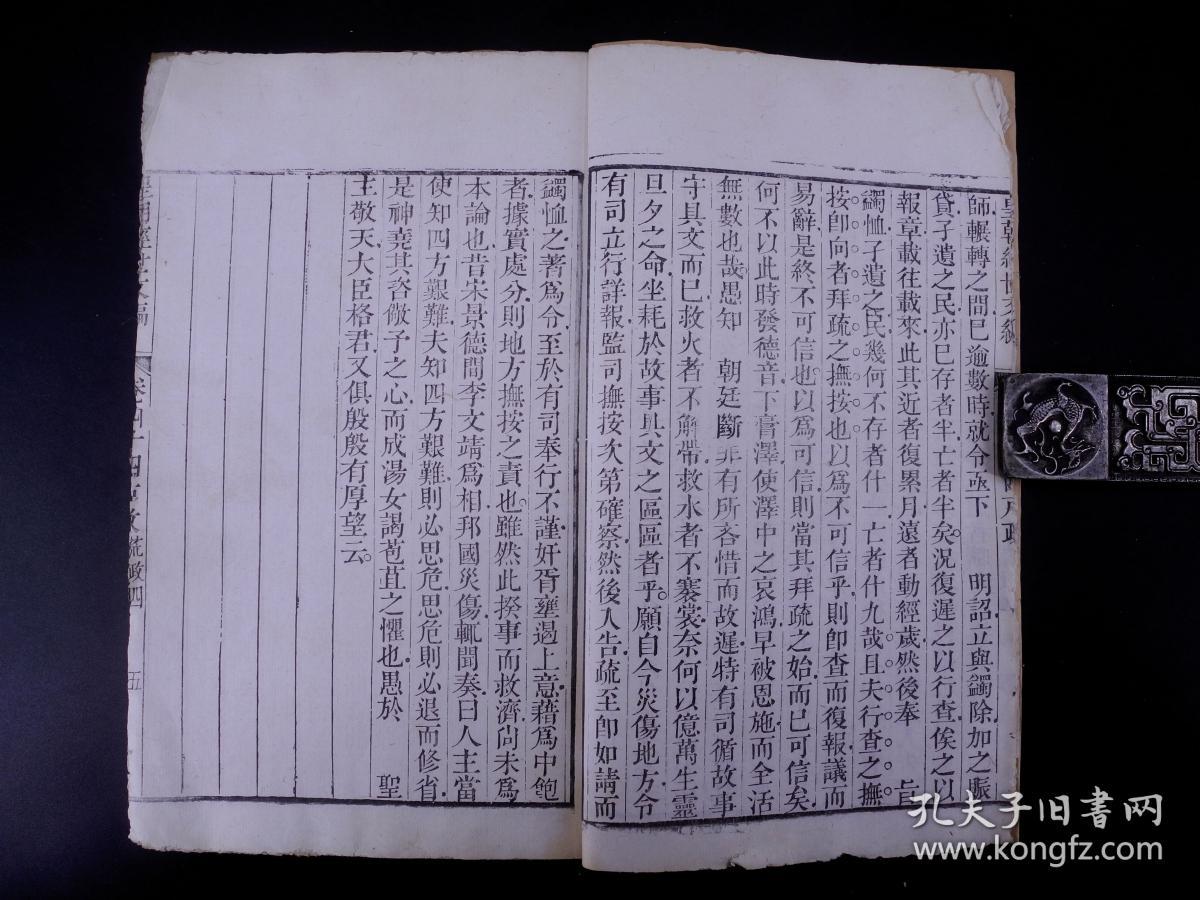 皇朝經世文編
師輾轉之間巳逾數時就令亟下　明詔立與蠲除加之賑
貸孑遺之民亦巳存者半亡者半矣況復遲之以行查俟之以
報章載往載來此其近者復累月遠者動經歲然後奉　旨
蠲恤孑遺之民幾何不存者什一亡者什九哉且夫行查之撫
按卽向者拜疏之撫按也以爲不可信乎則卽查而復報議而
易辭是終不可信也以爲可信則當其拜疏之始而巳可信矣
何不以此時發德音下膏澤使澤中之哀鴻早被恩施而全活
無數也哉愚知　朝廷斷非有所吝惜而故遲特有司循故事
守具文而巳救火者不解帶救水者不褰裳奈何以億萬生靈
旦夕之命坐耗於故事具文之區區者乎願自今災傷地方令
有司立行詳報監司撫按次第確察然後入告疏至卽如請而
蠲恤之著爲令至於有司奉行不謹奸胥壅遏上意藉爲中飽
者據實處分則地方撫按之責也雖然此揆事而救濟尙未爲
本論也昔宋景德間李文靖爲相邦國災傷輒聞奏曰人主當
使知四方艱難夫知四方艱難則必思危思危則必退而修省
是神堯其咨儆予之心而成湯女謁苞苴之懼也愚於　聖
主敬天大臣格君又俱殷殷有厚望云
皇朝經世文編　卷四十四戶政荒政四　五
孔夫子旧书网
www.kongfz.com